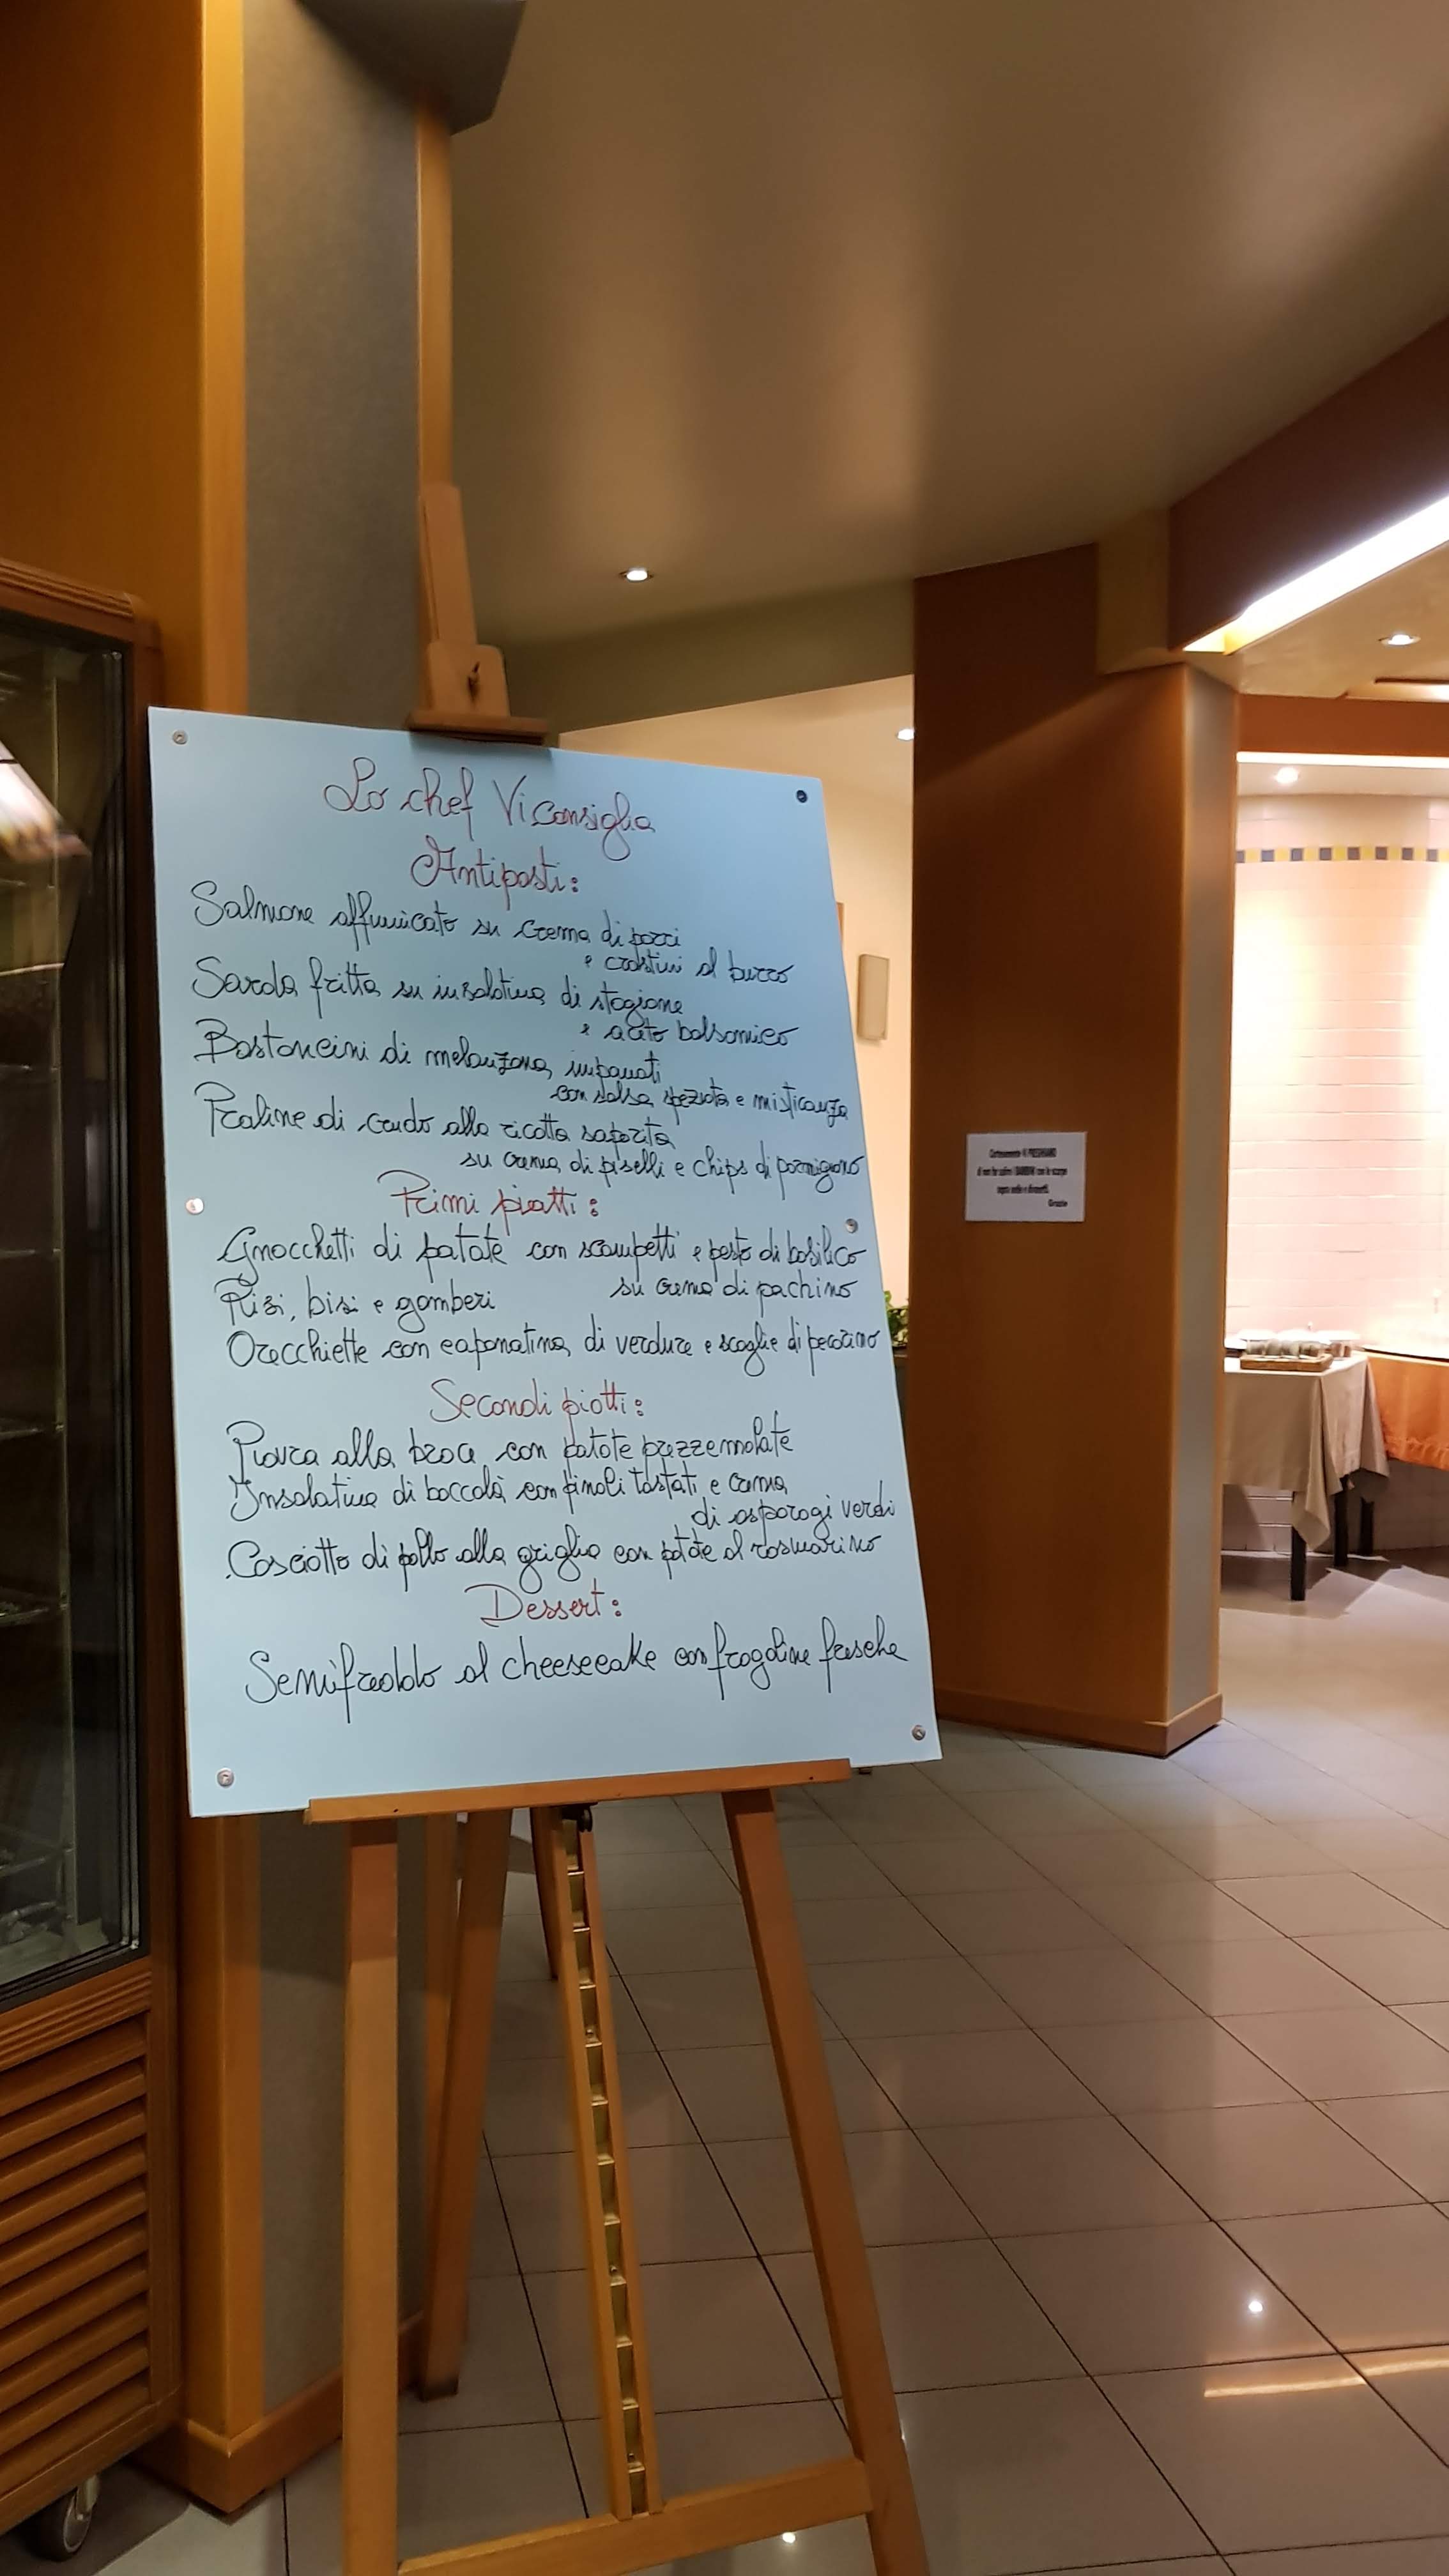 Lo chef Vi Consiglia
Antipasti:
Salmone affumicato su crema di porri
e crostini al burro
Sarda fritta su insalatina di stagione
e aceto balsamico
Bastoncini di melanzana impanati
con salsa speziata e misticanza
Praline di crudo alla ricotta saporita
su crema di piselli e chips di parmigiano
Primi piatti:
Gnocchetti di patate con scampetti e pesto di basilico
su crema di pachino
Risi, bisi e gamberi
Orecchiette con caponatina di verdure e scaglie di pecorino
Secondi piatti:
Piovra alla brace con patate prezzemolate
Insalatina di baccalà con pinoli tostati e crema
di asparagi verdi
Cosciotto di pollo alla griglia con patate al rosmarino
Dessert:
Semifreddo al cheesecake con fragoline fresche
Cortesemente Vi PREGHIAMO
di non far salire i BAMBINI con le scarpe
sopra sedie e divanetti.
Grazie